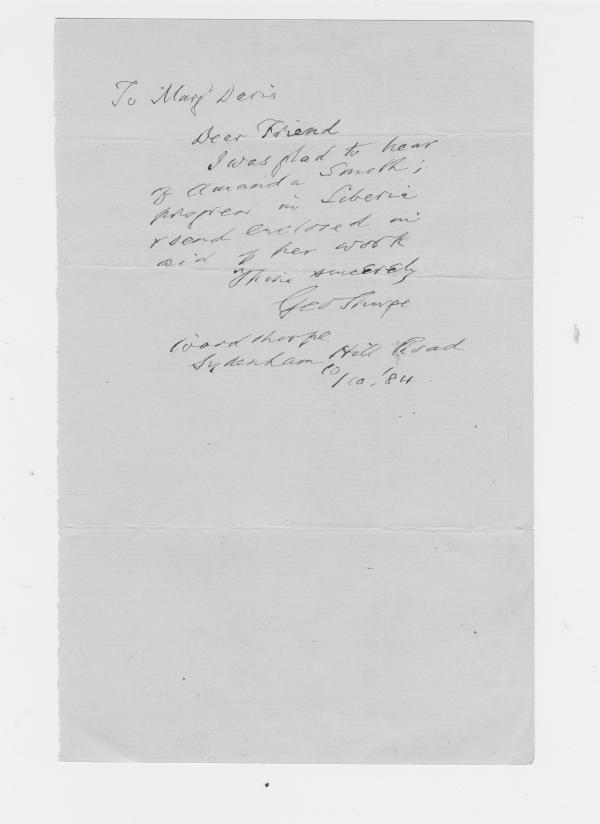 To Marg't Davis
Dear Friend
I was glad to hear
of Amanda Smith's
progress in Liberia
& send enclosed in
aid of her work
Thine sincerely
Geo Thorpe
Woodthorpe
Sydenham Hill Road
10/10/'84